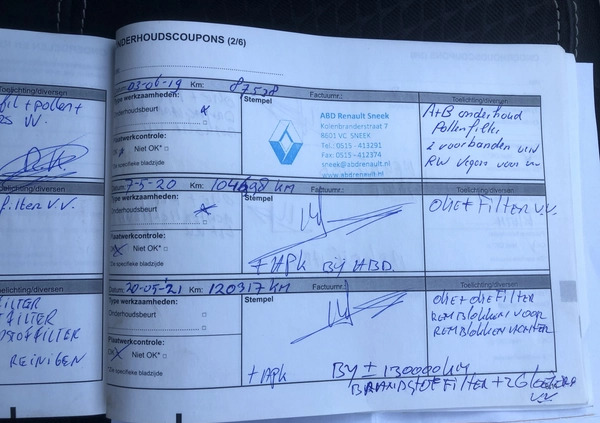 Toelichting/diversen
ONDERHOUDSCOUPONS (2/6)
03-06-19 Km: 87528 Factuurnr.: Toelichting/diversen
Type werkzaamheden:
Onderhoudsbeurt
Stempel
ABD Renault Sneek
Kolenbranderstraat 7
8601 VC SNEEK
Tel.: 0515 - 413291
Fax: 0515 - 412374
sneek@abdrenault.nl
www.abdrenault.nl
A+B onderhoud
Pollenfilter
2 voorbanden
Plaatwerkcontrole:
Niet OK*
*Zie specifieke bladzijde
filter V.V.
Datum: 7-5-20 Km: 104698 KM Factuurnr.: Toelichting/diversen
Type werkzaamheden:
Onderhoudsbeurt
Stempel
OLIE + FILTER V.V.
Plaatwerkcontrole:
Niet OK*
*Zie specifieke bladzijde
+ APK BY ABD.
Toelichting/diversen
Datum: 20-05-'21 Km: 120317 KM Factuurnr.: Toelichting/diversen
Type werkzaamheden:
Onderhoudsbeurt
Stempel
OLIE + OLIEFILTER
REMBLOKKEN VOOR
REMBLOKKEN ACHTER
FILTER
FILTER
STOFFILTER
REINIGEN
Plaatwerkcontrole:
OK Niet OK*
*Zie specifieke bladzijde
+ APK
BY ± 130000 KM
BRANDSTOFFILTER + 2 V.V.